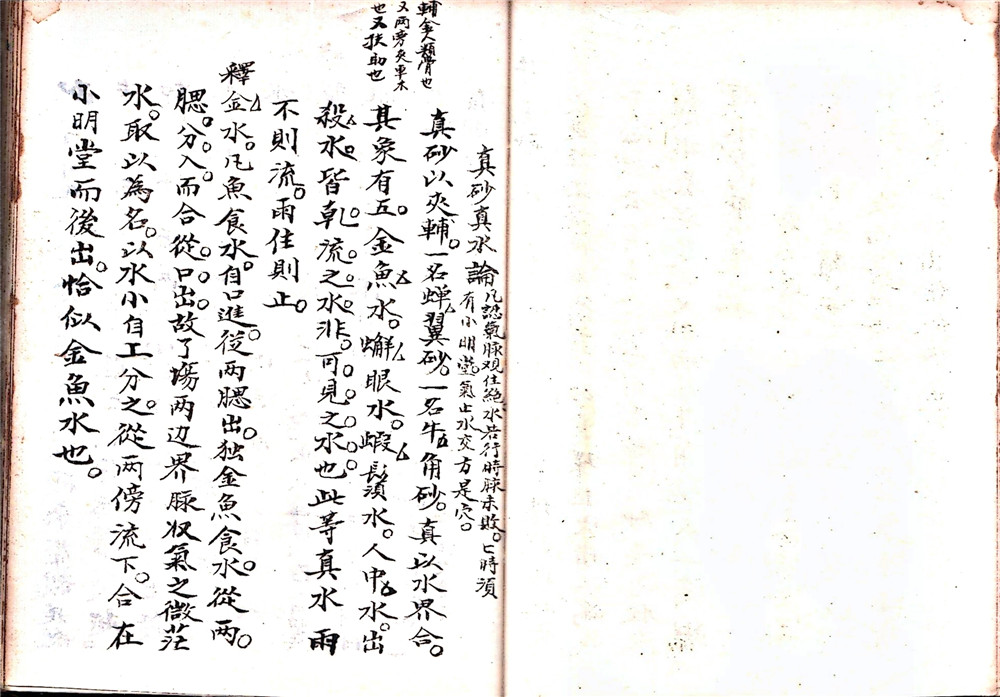 真砂真水論凡認氣脉观住絶水若行時脉未收。時須
有小明堂。氣止水交方是穴。
輔金人類骨也
又两旁夾車木
也又扶助也
真砂以夾輔。一名蟬翼砂。一名牛角砂。真以水界合。
其象有五。金魚水。蠏眼水。蝦鬚水。人中水。出
殺水皆乹流之水非可見之水也此等真水雨
不則流。雨住則止。
釋金水。凡魚食水。自口進。從两腮出。独金魚食水。從两。
腮。分入而合從口出。故了塲两边界脉収氣之微茫
水。取以為名。以水小自工分之。從两傍流下。合在
小明堂而後出。恰似金魚水也。